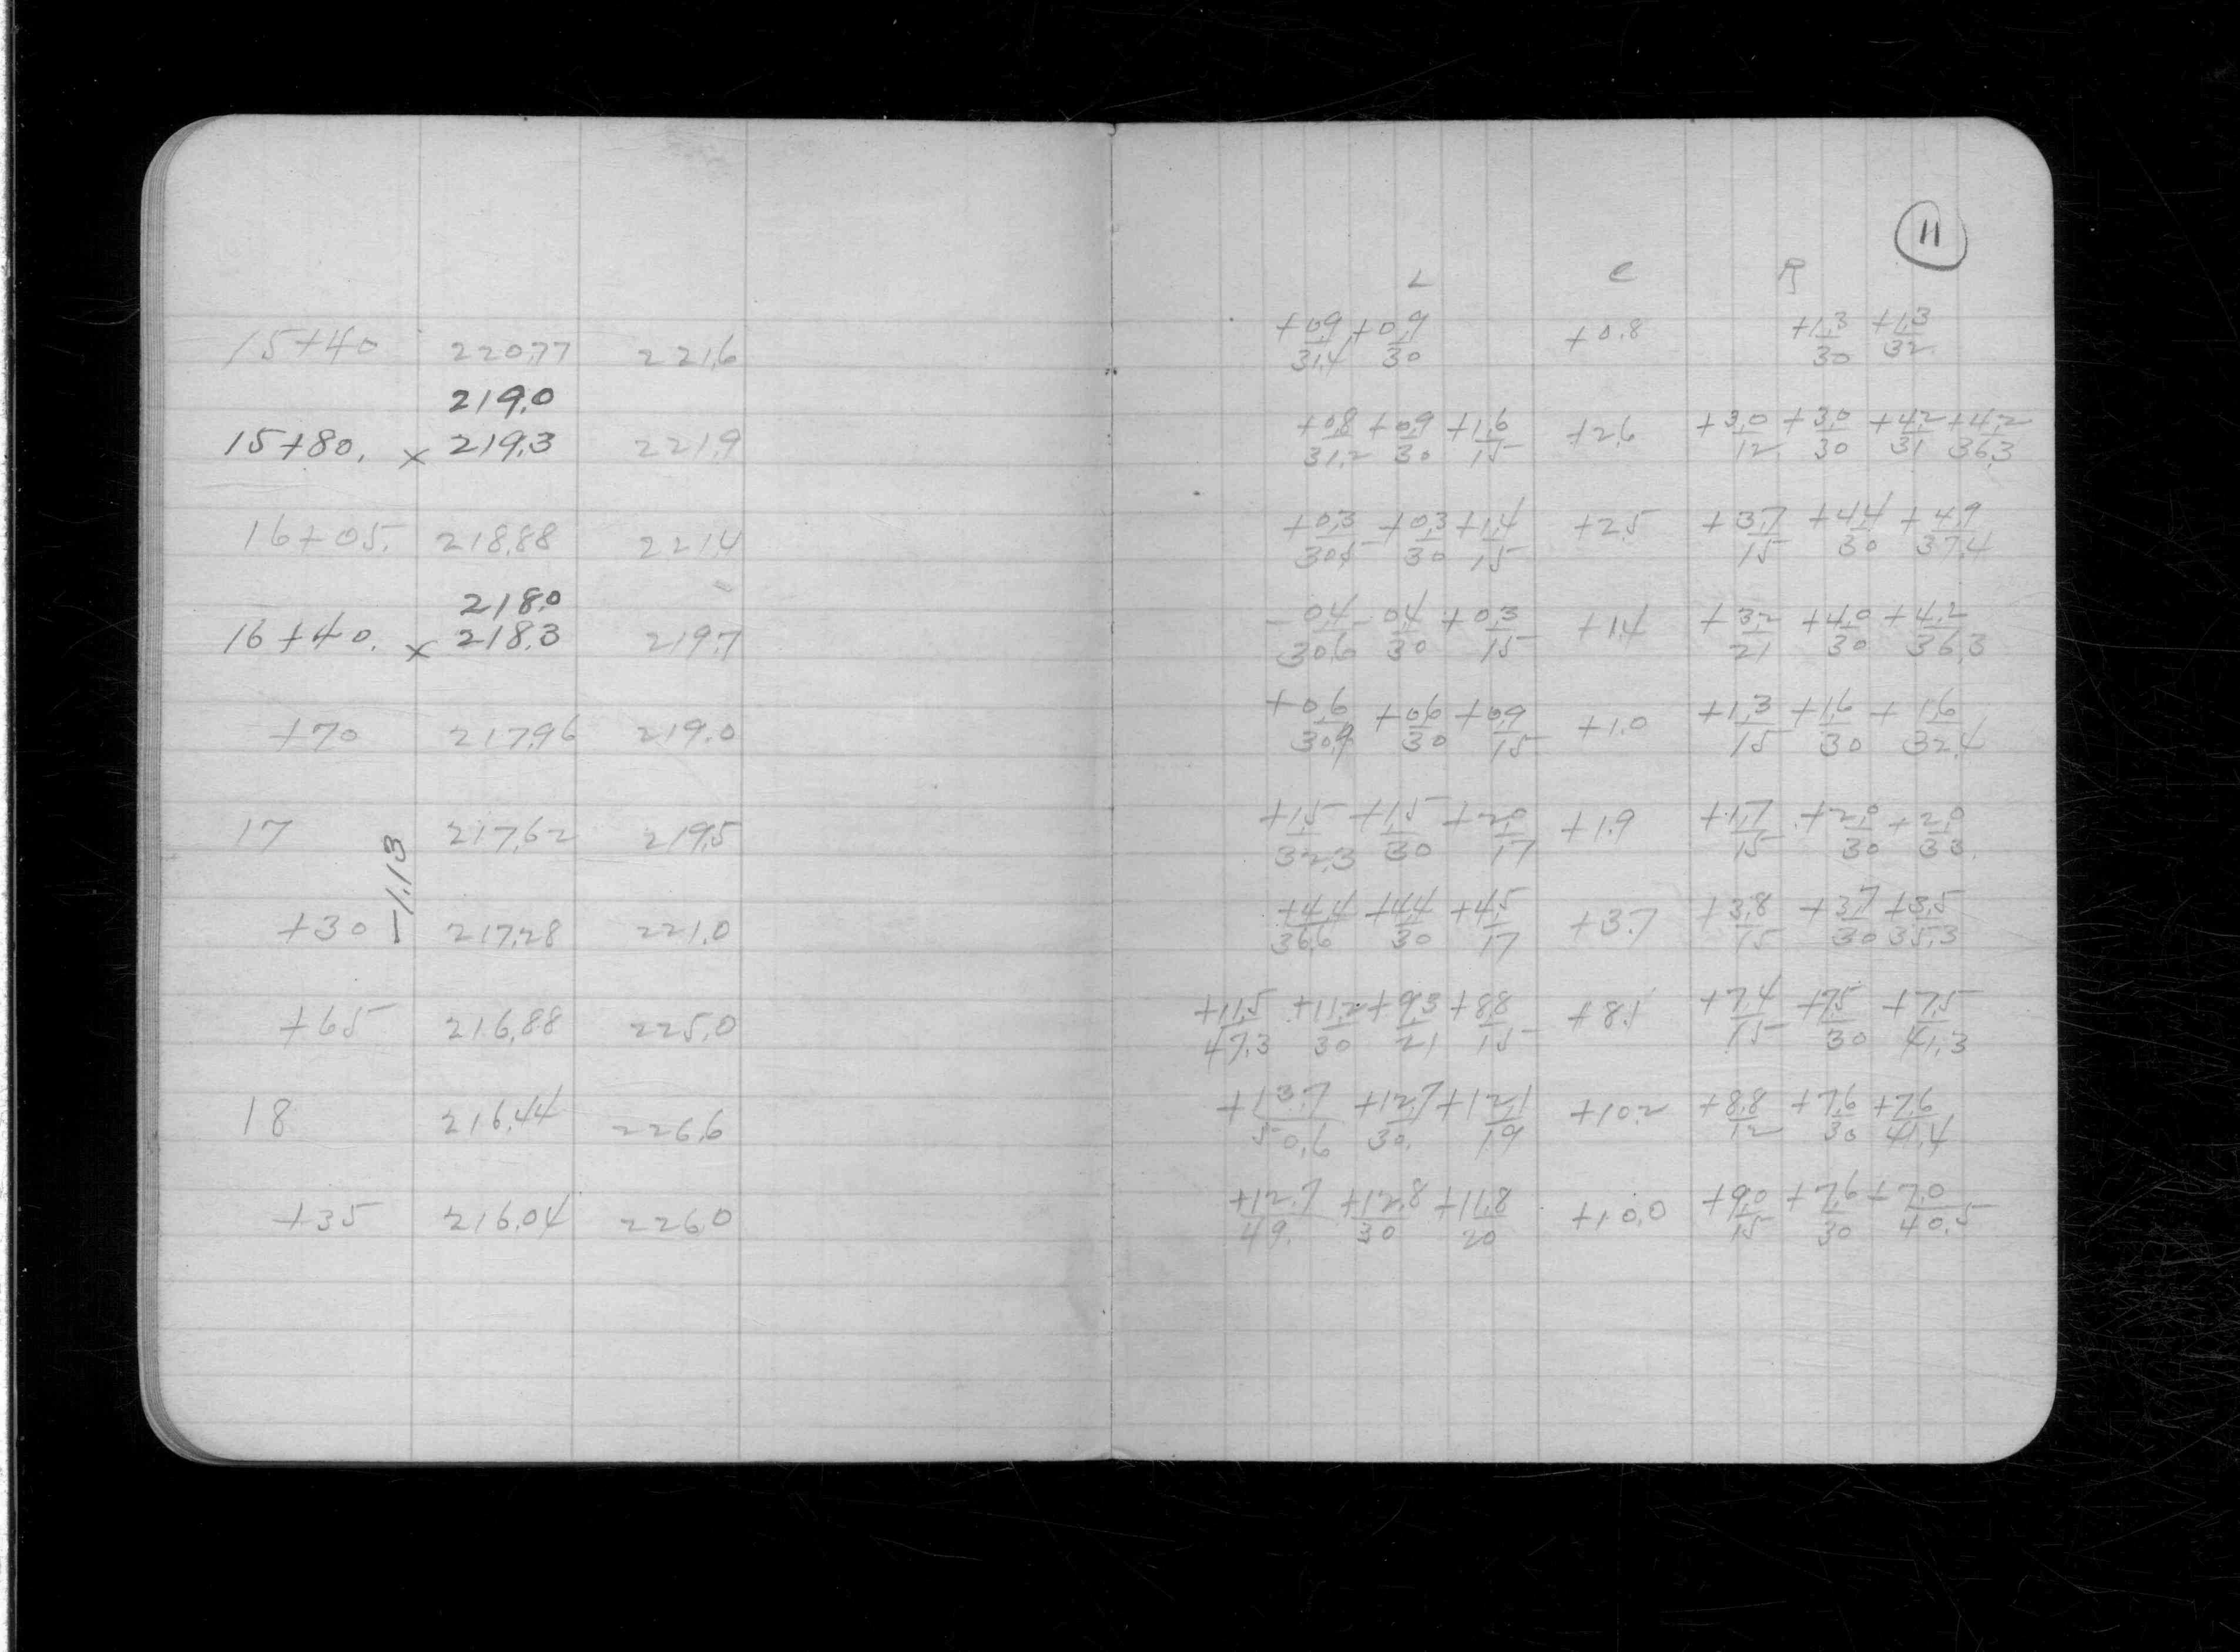 11
L C R
15+40 220.77 221.6 +0.9/31.4 +0.9/30 +0.8 +1.3/30 +1.3/32
219.0
15+80. x 219.3 221.9 +0.8/31.2 +0.9/30 +1.6/15 +2.6 +3.0/12 +3.0/30 +4.2/31 +4.2/36.3
16+05. 218.88 221.4 +0.3/30.5 +0.3/30 +1.4/15 +2.5 +3.7/15 +4.4/30 +4.9/37.4
218.0
16+40. x 218.3 219.7 -0.4/30.6 -0.4/30 +0.3/15 +1.4 +3.2/21 +4.0/30 +4.2/36.3
+70 217.96 219.0 +0.6/30.9 +0.6/30 +0.9/15 +1.0 +1.3/15 +1.6/30 +1.6/32.4
17 217.62 219.5 +1.5/32.3 +1.5/30 +2.0/17 +1.9 +1.7/15 +2.0/30 +2.0/33.
-1.13
+30 217.28 221.0 +4.4/36.6 +4.4/30 +4.5/17 +3.7 +3.8/15 +3.7/30 +3.5/35.3
+65 216.88 225.0 +11.5/47.3 +11.2/30 +9.3/21 +8.8/15 +8.1 +7.4/15 +7.5/30 +7.5/41.3
18 216.44 226.6 +13.7/50.6 +12.7/30. +12.1/19 +10.2 +8.8/12 +7.6/30 +7.6/41.4
+35 216.04 226.0 +12.7/49. +12.8/30 +11.8/20 +10.0 +9.0/15 +7.6/30 +7.0/40.5